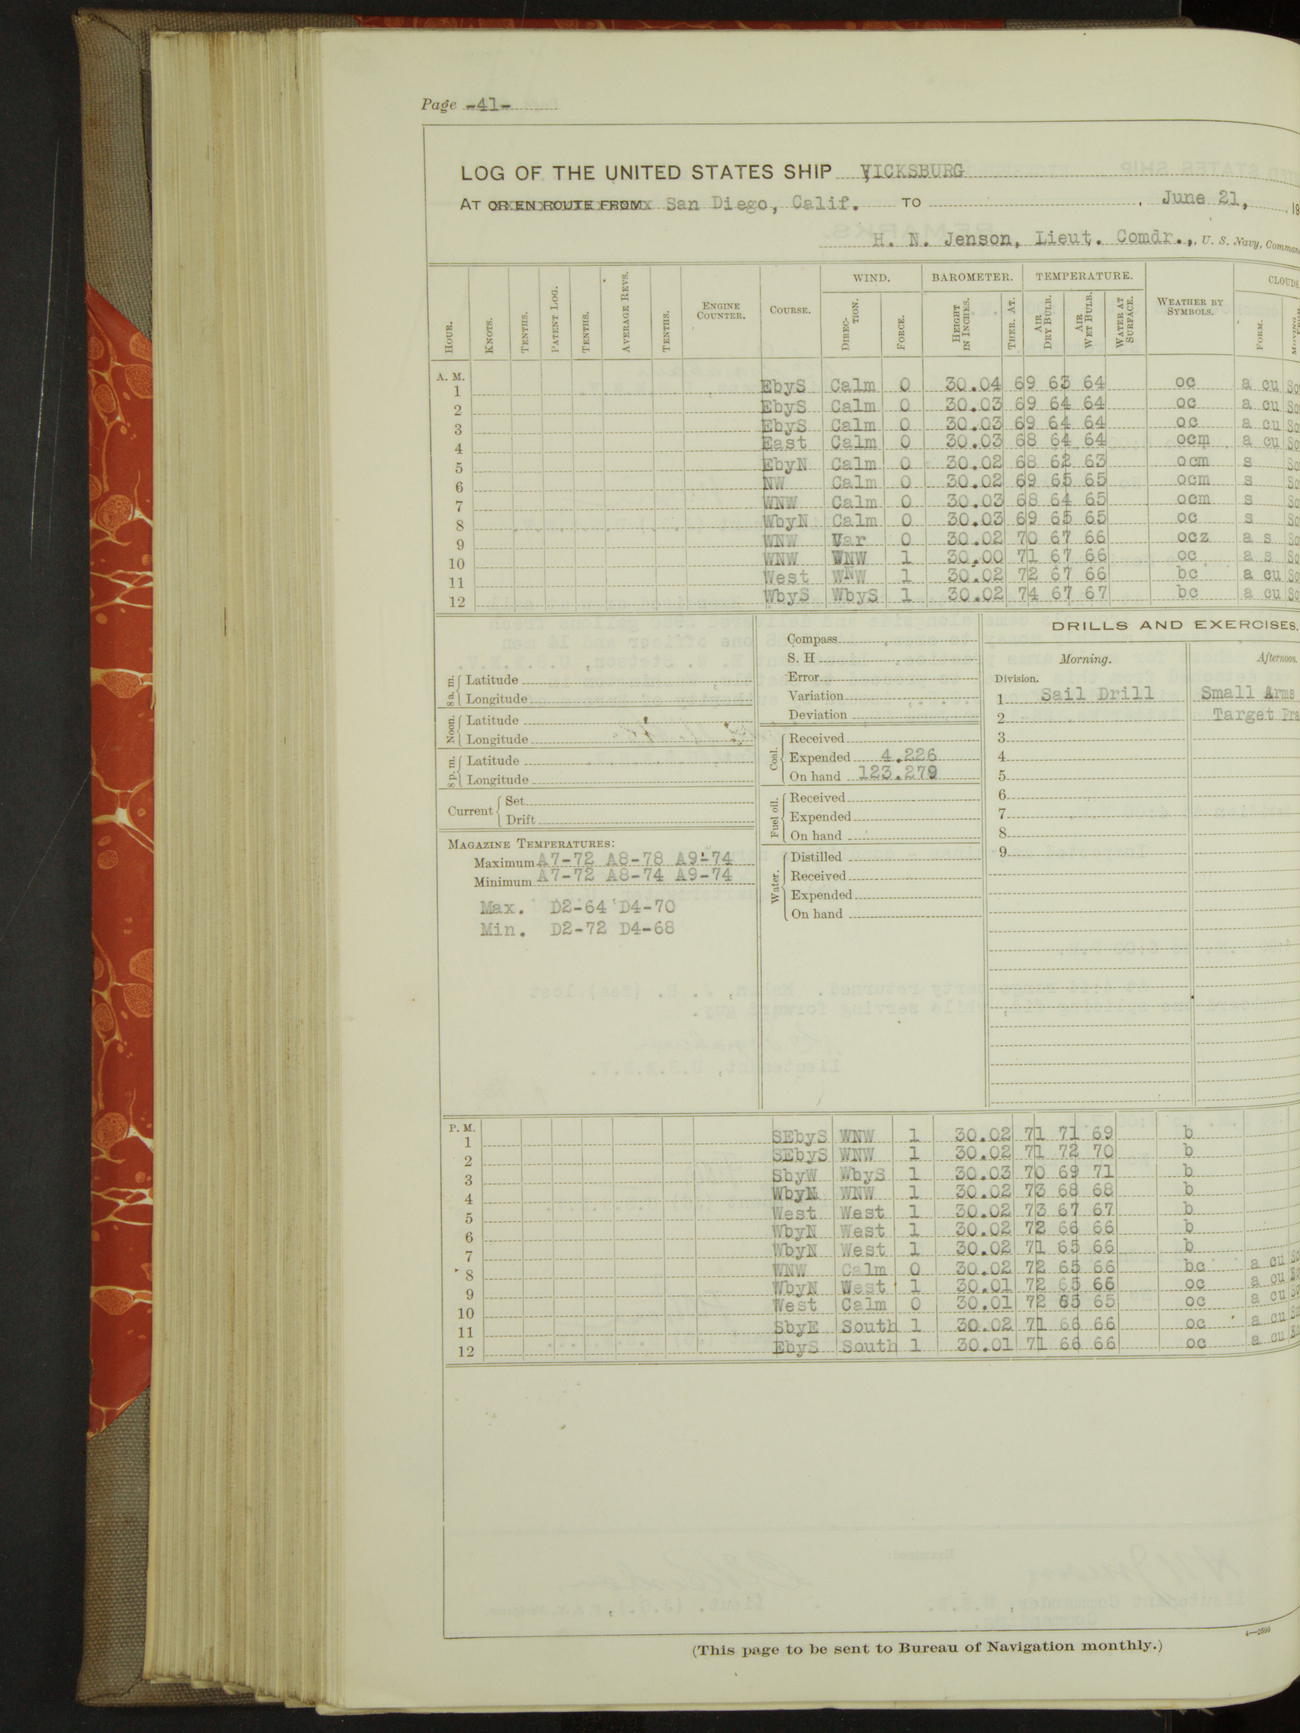 Page -41-
LOG OF THE UNITED STATES SHIP VICKSBURG
AT OR EN ROUTE FROM San Diego, Calif. TO , June 21, , 19
H. N. Jenson, Lieut. Comdr., U. S. Navy, Comman
WIND. BAROMETER. TEMPERATURE. CLOUDS
HOUR. KNOTS. TENTHS. PATENT LOG. TENTHS. AVERAGE REVS. TENTHS. ENGINE COUNTER. COURSE. DIREC-TION. FORCE. HEIGHT IN INCHES. THER. AT. AIR DRY BULB. AIR WET BULB. WATER AT SURFACE. WEATHER BY SYMBOLS. FORM. MOVING
A. M.
1 EbyS Calm 0 30.04 69 63 64 oc a cu
2 EbyS Calm 0 30.03 69 64 64 oc a cu
3 EbyS Calm 0 30.03 69 64 64 oc a cu
4 East Calm 0 30.03 68 64 64 ocm a cu
5 EbyN Calm 0 30.02 68 62 63 ocm s
6 NW Calm 0 30.02 69 65 65 ocm s
7 WNW Calm 0 30.03 68 64 65 ocm s
8 WbyN Calm 0 30.03 69 65 65 oc s
9 WNW Var 0 30.02 70 67 66 ocz a s
10 WNW WNW 1 30.00 71 67 66 oc a s
11 West WNW 1 30.02 72 67 66 bc a cu
12 WbyS WbyS 1 30.02 74 67 67 bc a cu
8 a. m. Latitude
Longitude
Noon. Latitude
Longitude
8 p. m. Latitude
Longitude
Current Set
Drift
MAGAZINE TEMPERATURES:
Maximum A7-72 A8-78 A9-74
Minimum A7-72 A8-74 A9-74
Max. D2-64 D4-70
Min. D2-72 D4-68
Compass
S. H
Error
Variation
Deviation
Coal. Received
Expended 4.226
On hand 123.279
Fuel oil. Received
Expended
On hand
Water. Distilled
Received
Expended
On hand
DRILLS AND EXERCISES.
Morning. Afternoon.
Division.
1 Sail Drill Small Arms
2 Target Pra
3
4
5
6
7
8
9
P. M.
1 SEbyS WNW 1 30.02 71 71 69 b
2 SEbyS WNW 1 30.02 71 72 70 b
3 SbyW WbyS 1 30.03 70 69 71 b
4 WbyN WNW 1 30.02 73 68 68 b
5 West West 1 30.02 73 67 67 b
6 WbyN West 1 30.02 72 66 66 b
7 WbyN West 1 30.02 71 65 66 b
8 WNW Calm 0 30.02 72 65 66 bc a cu
9 WbyN West 1 30.01 72 65 66 oc a cu
10 West Calm 0 30.01 72 65 65 oc a cu
11 SbyE South 1 30.02 71 66 66 oc a cu
12 EbyS South 1 30.01 71 66 66 oc a cu
(This page to be sent to Bureau of Navigation monthly.)